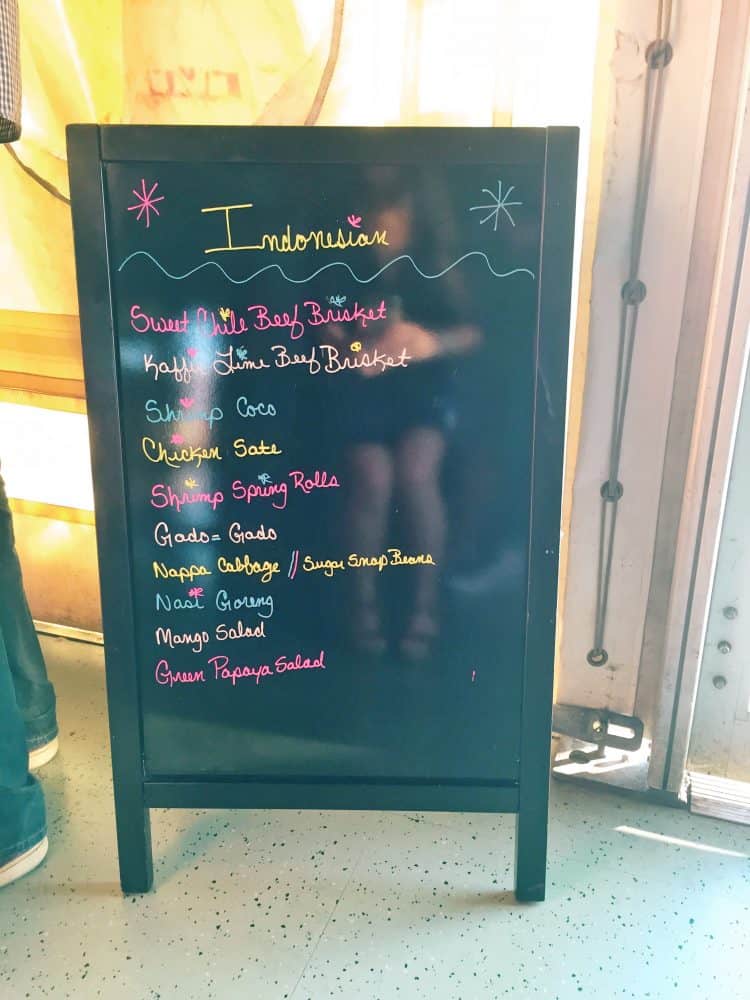 Indonesian
Sweet Chile Beef Brisket
Kaffir Lime Beef Brisket
Shrimp Coco
Chicken Sate
Shrimp Spring Rolls
Gado=Gado
Nappa Cabbage // Sugar Snap Beans
Nasi Goreng
Mango Salad
Green Papaya Salad